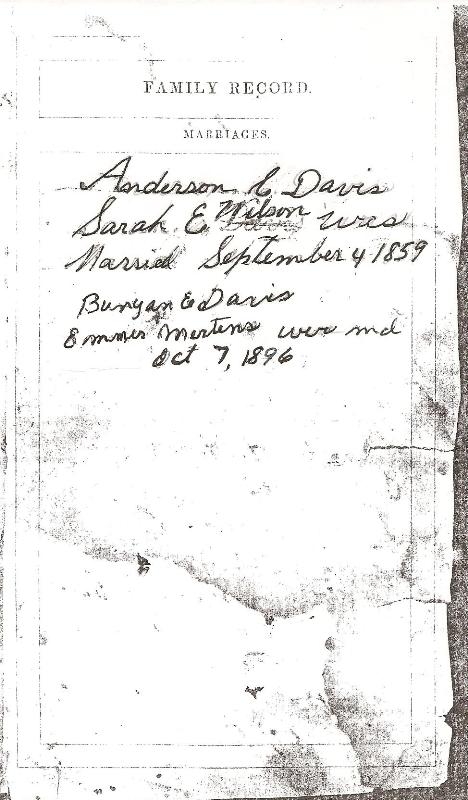 FAMILY RECORD.
MARRIAGES.
Anderson C Davis
Sarah E Wilson was
Married September 4 1859
Bunyan E Davis
Emmer Mertens wer md
Oct 7, 1896